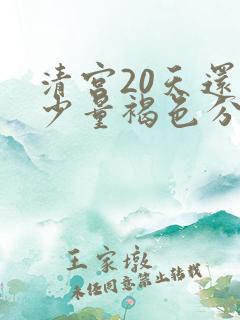 清宮20天還
少量褐色分
王家墩
未经同意禁止转载